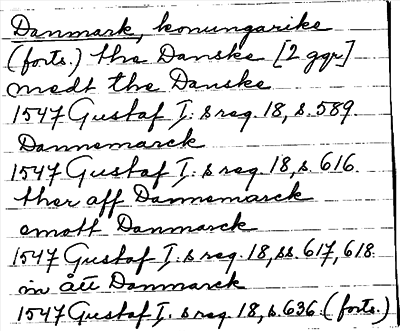 Danmark, konungarike
(forts.) the Danske [2 ggr]
medt the Danske
1547 Gustaf I:s reg. 18, s. 589.
Dannemarck
1547 Gustaf I:s reg. 18, s. 616.
ther aff Dannemarck
emott Danmarck
1547 Gustaf I:s reg. 18, ss. 617, 618.
in ått Danmarck
1547 Gustaf I:s reg. 18, s. 636 (forts.)